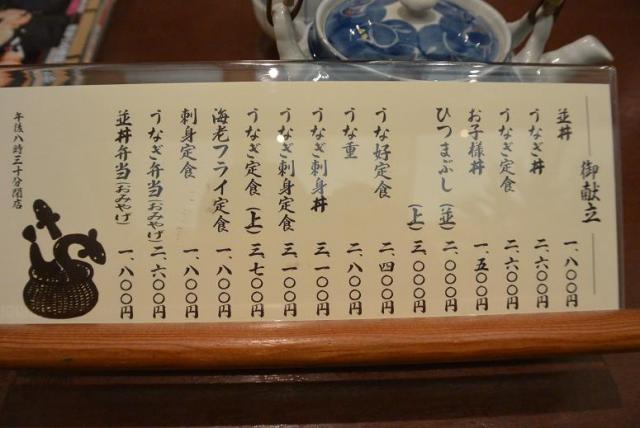 御献立
並丼 一、八〇〇円
うなぎ丼 二、六〇〇円
うなぎ定食 二、六〇〇円
お子様丼 一、五〇〇円
ひつまぶし（並） 二、〇〇〇円
（上） 三、〇〇〇円
うな好定食 二、四〇〇円
うな重 二、八〇〇円
うなぎ刺身丼 三、一〇〇円
うなぎ刺身定食 三、一〇〇円
うなぎ定食（上） 三、七〇〇円
海老フライ定食 一、八〇〇円
刺身定食 一、八〇〇円
うなぎ弁当（おみやげ） 二、六〇〇円
並丼弁当（おみやげ） 一、八〇〇円
午後八時三十分閉店